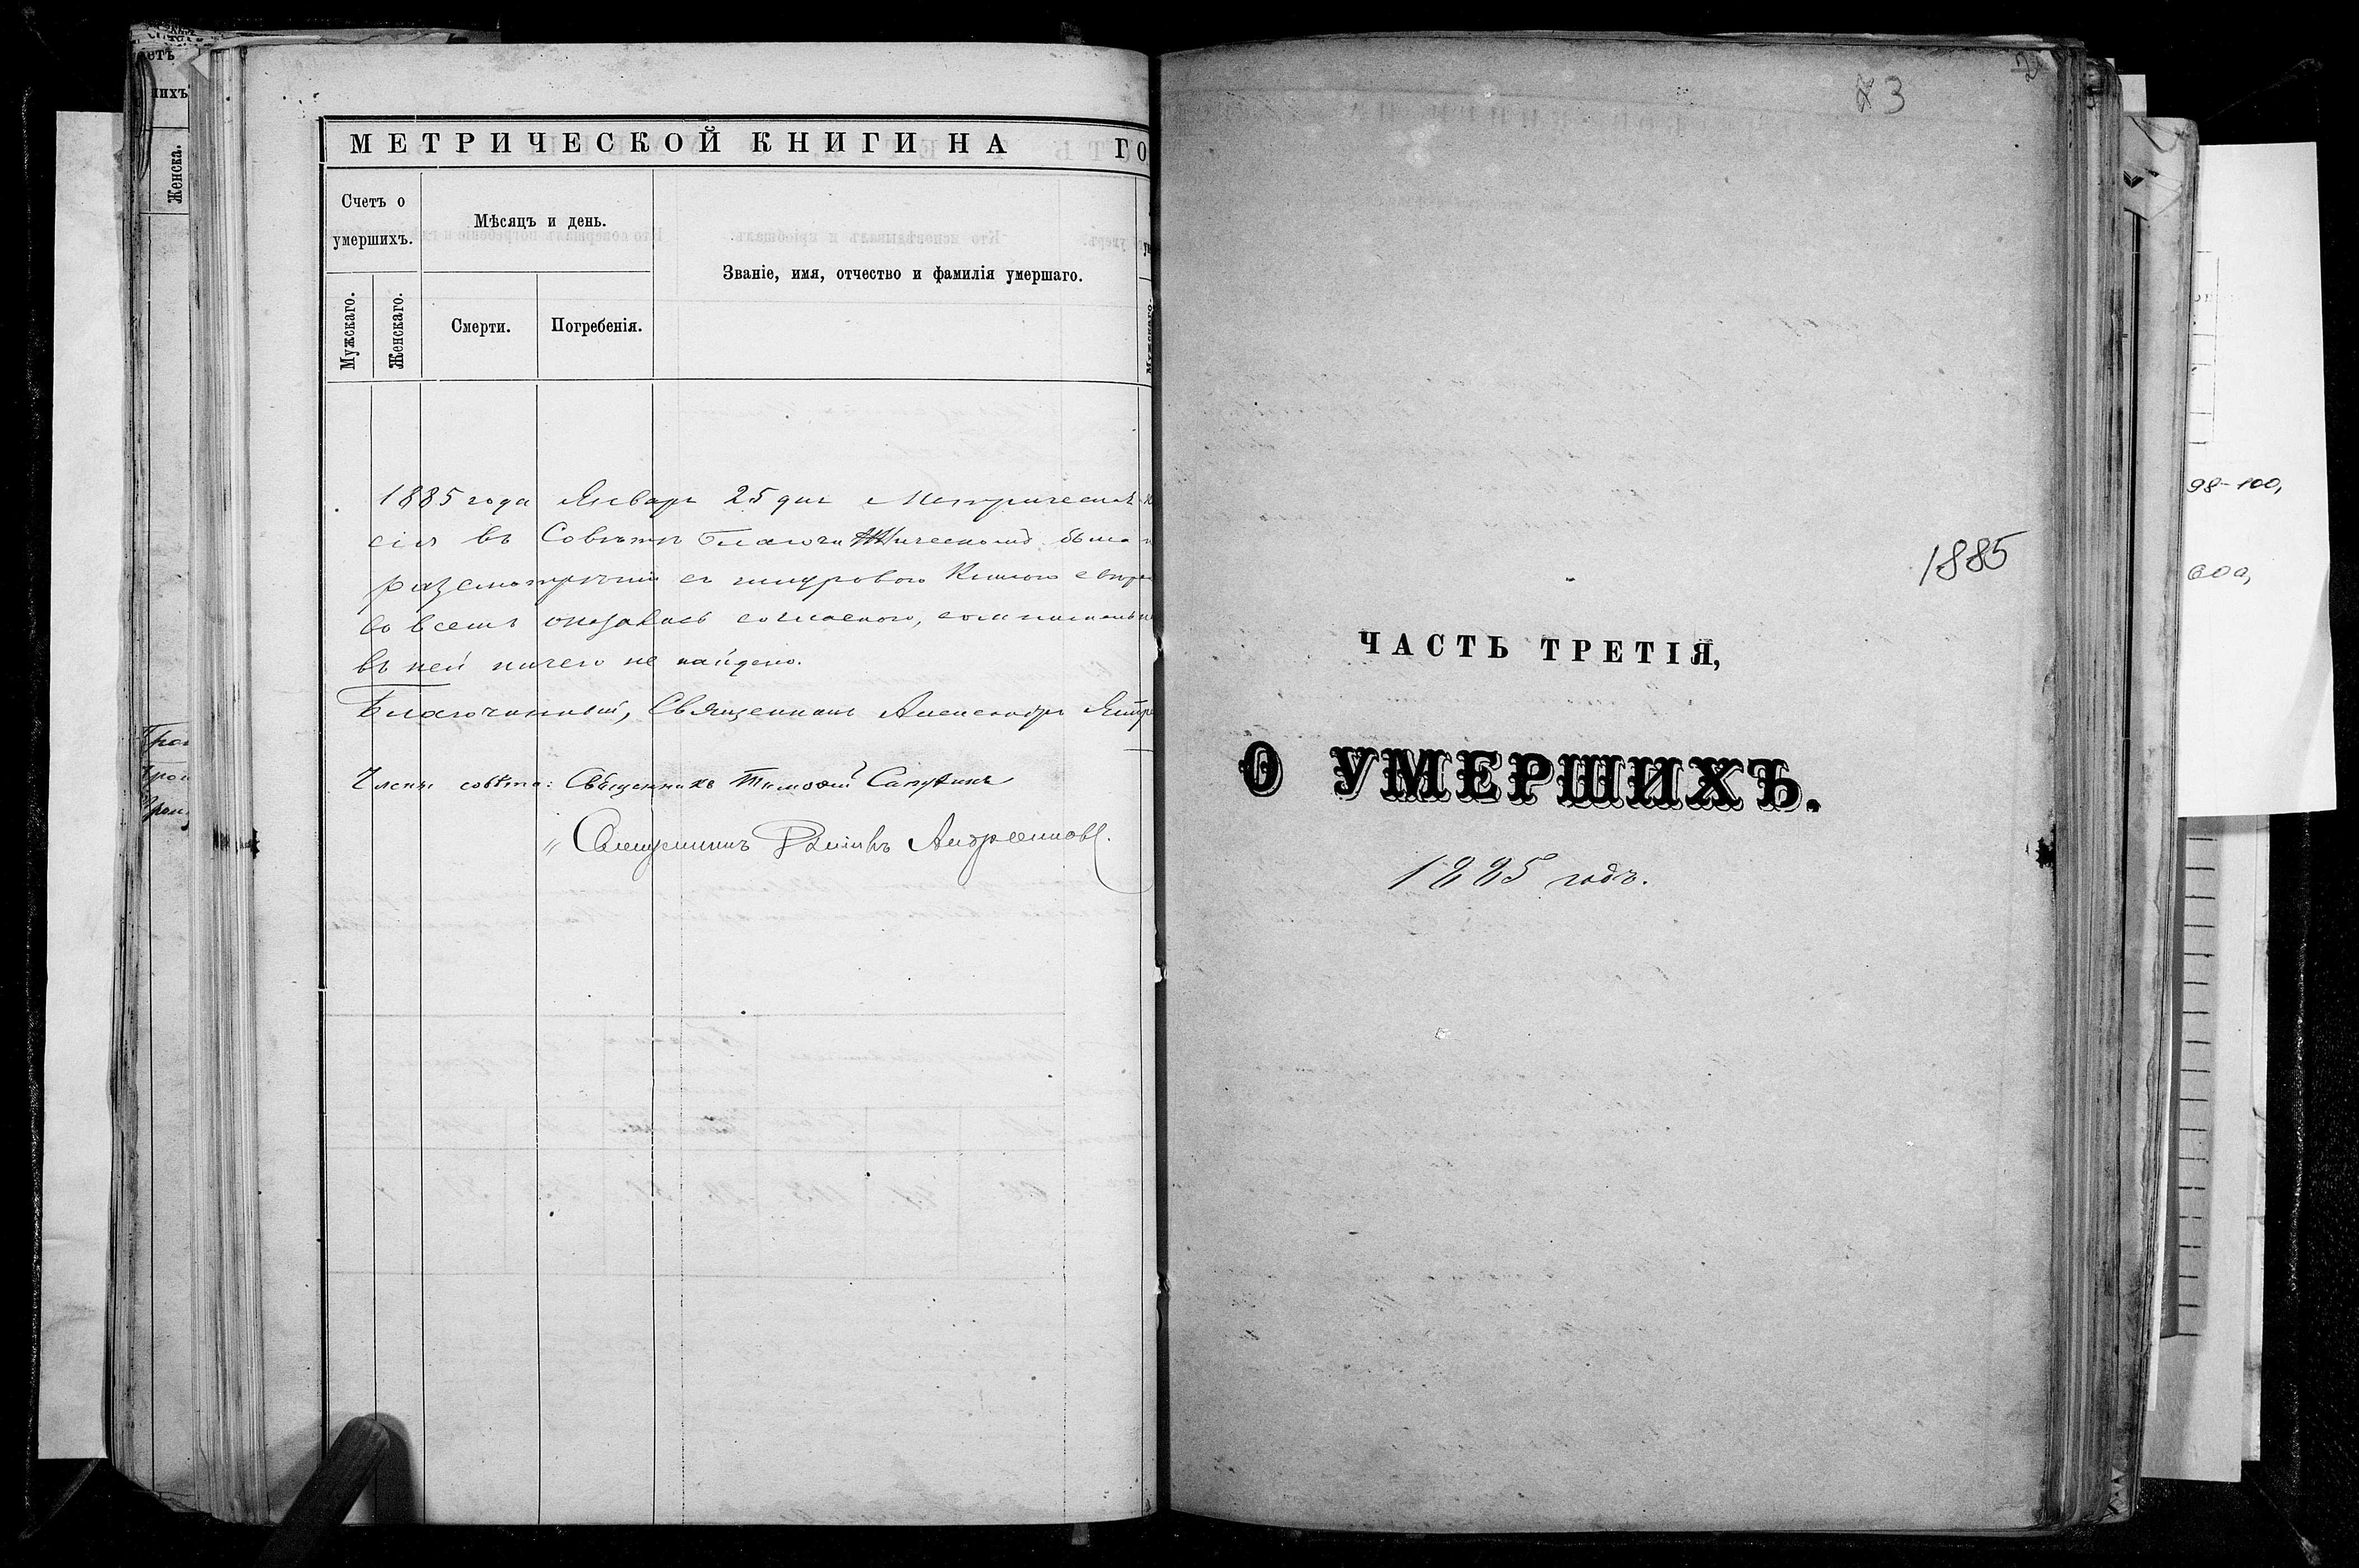 МЕТРИЧЕСКОЙ КНИГИ НА ГО
Счетъ о умершихъ.
Мѣсяцъ и день.
Званіе, имя, отчество и фамилія умершаго.
Мужскаго.
Женскаго.
Смерти.
Погребенія.
1885 года Января 25 дня Метрическая
сія въ Совѣтѣ Благочинническомъ была
разсмотрѣна съ шнуровою Книгою
во всемъ оказалась согласною, сомнительн
въ ней ничего не найдено.
Благочинный, Священникъ Александръ
Члены совѣта: Священникъ Тимоѳей
" Священникъ Андреенковъ.
3
1885
ЧАСТЬ ТРЕТІЯ,
О УМЕРШИХЪ.
1885 годъ.
етъ
ихъ
Женска.
98-100,